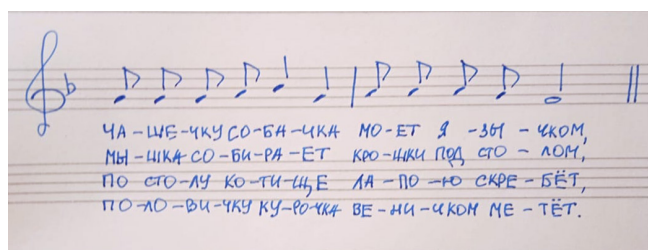 ЧА-ШЕ-ЧКУ СО-БА-ЧКА МО-ЕТ Я-ЗЫ-ЧКОМ,
МЫ-ШКА СО-БИ-РА-ЕТ КРО-ШКИ ПОД СТО-ЛОМ,
ПО СТО-ЛУ КО-ТИ-ЩЕ ЛА-ПО-Ю СКРЕ-БЁТ,
ПО-ЛО-ВИ-ЧКУ КУ-РО-ЧКА ВЕ-НИ-ЧКОМ МЕ-ТЁТ.